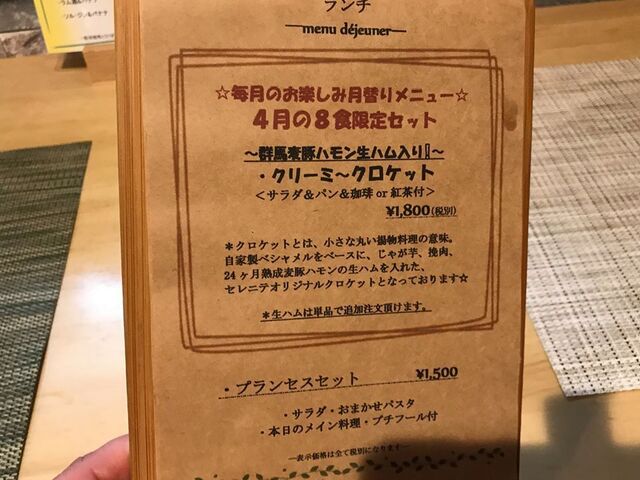 ランチ
menu déjeuner
☆毎月のお楽しみ月替りメニュー☆
4月の8食限定セット
〜群馬麦豚ハモン生ハム入り!〜
・クリーミ〜クロケット
＜サラダ＆パン＆珈琲 or 紅茶付＞
¥1,800(税別)
＊クロケットとは、小さな丸い揚物料理の意味。
自家製ベシャメルをベースに、じゃが芋、挽肉、
24ヶ月熟成麦豚ハモンの生ハムを入れた、
セレニテオリジナルクロケットとなっております☆
＊生ハムは単品で追加注文頂けます。
・プランセスセット ¥1,500
・サラダ・おまかせパスタ
・本日のメイン料理・プチフール付
―表示価格は全て税別になります―